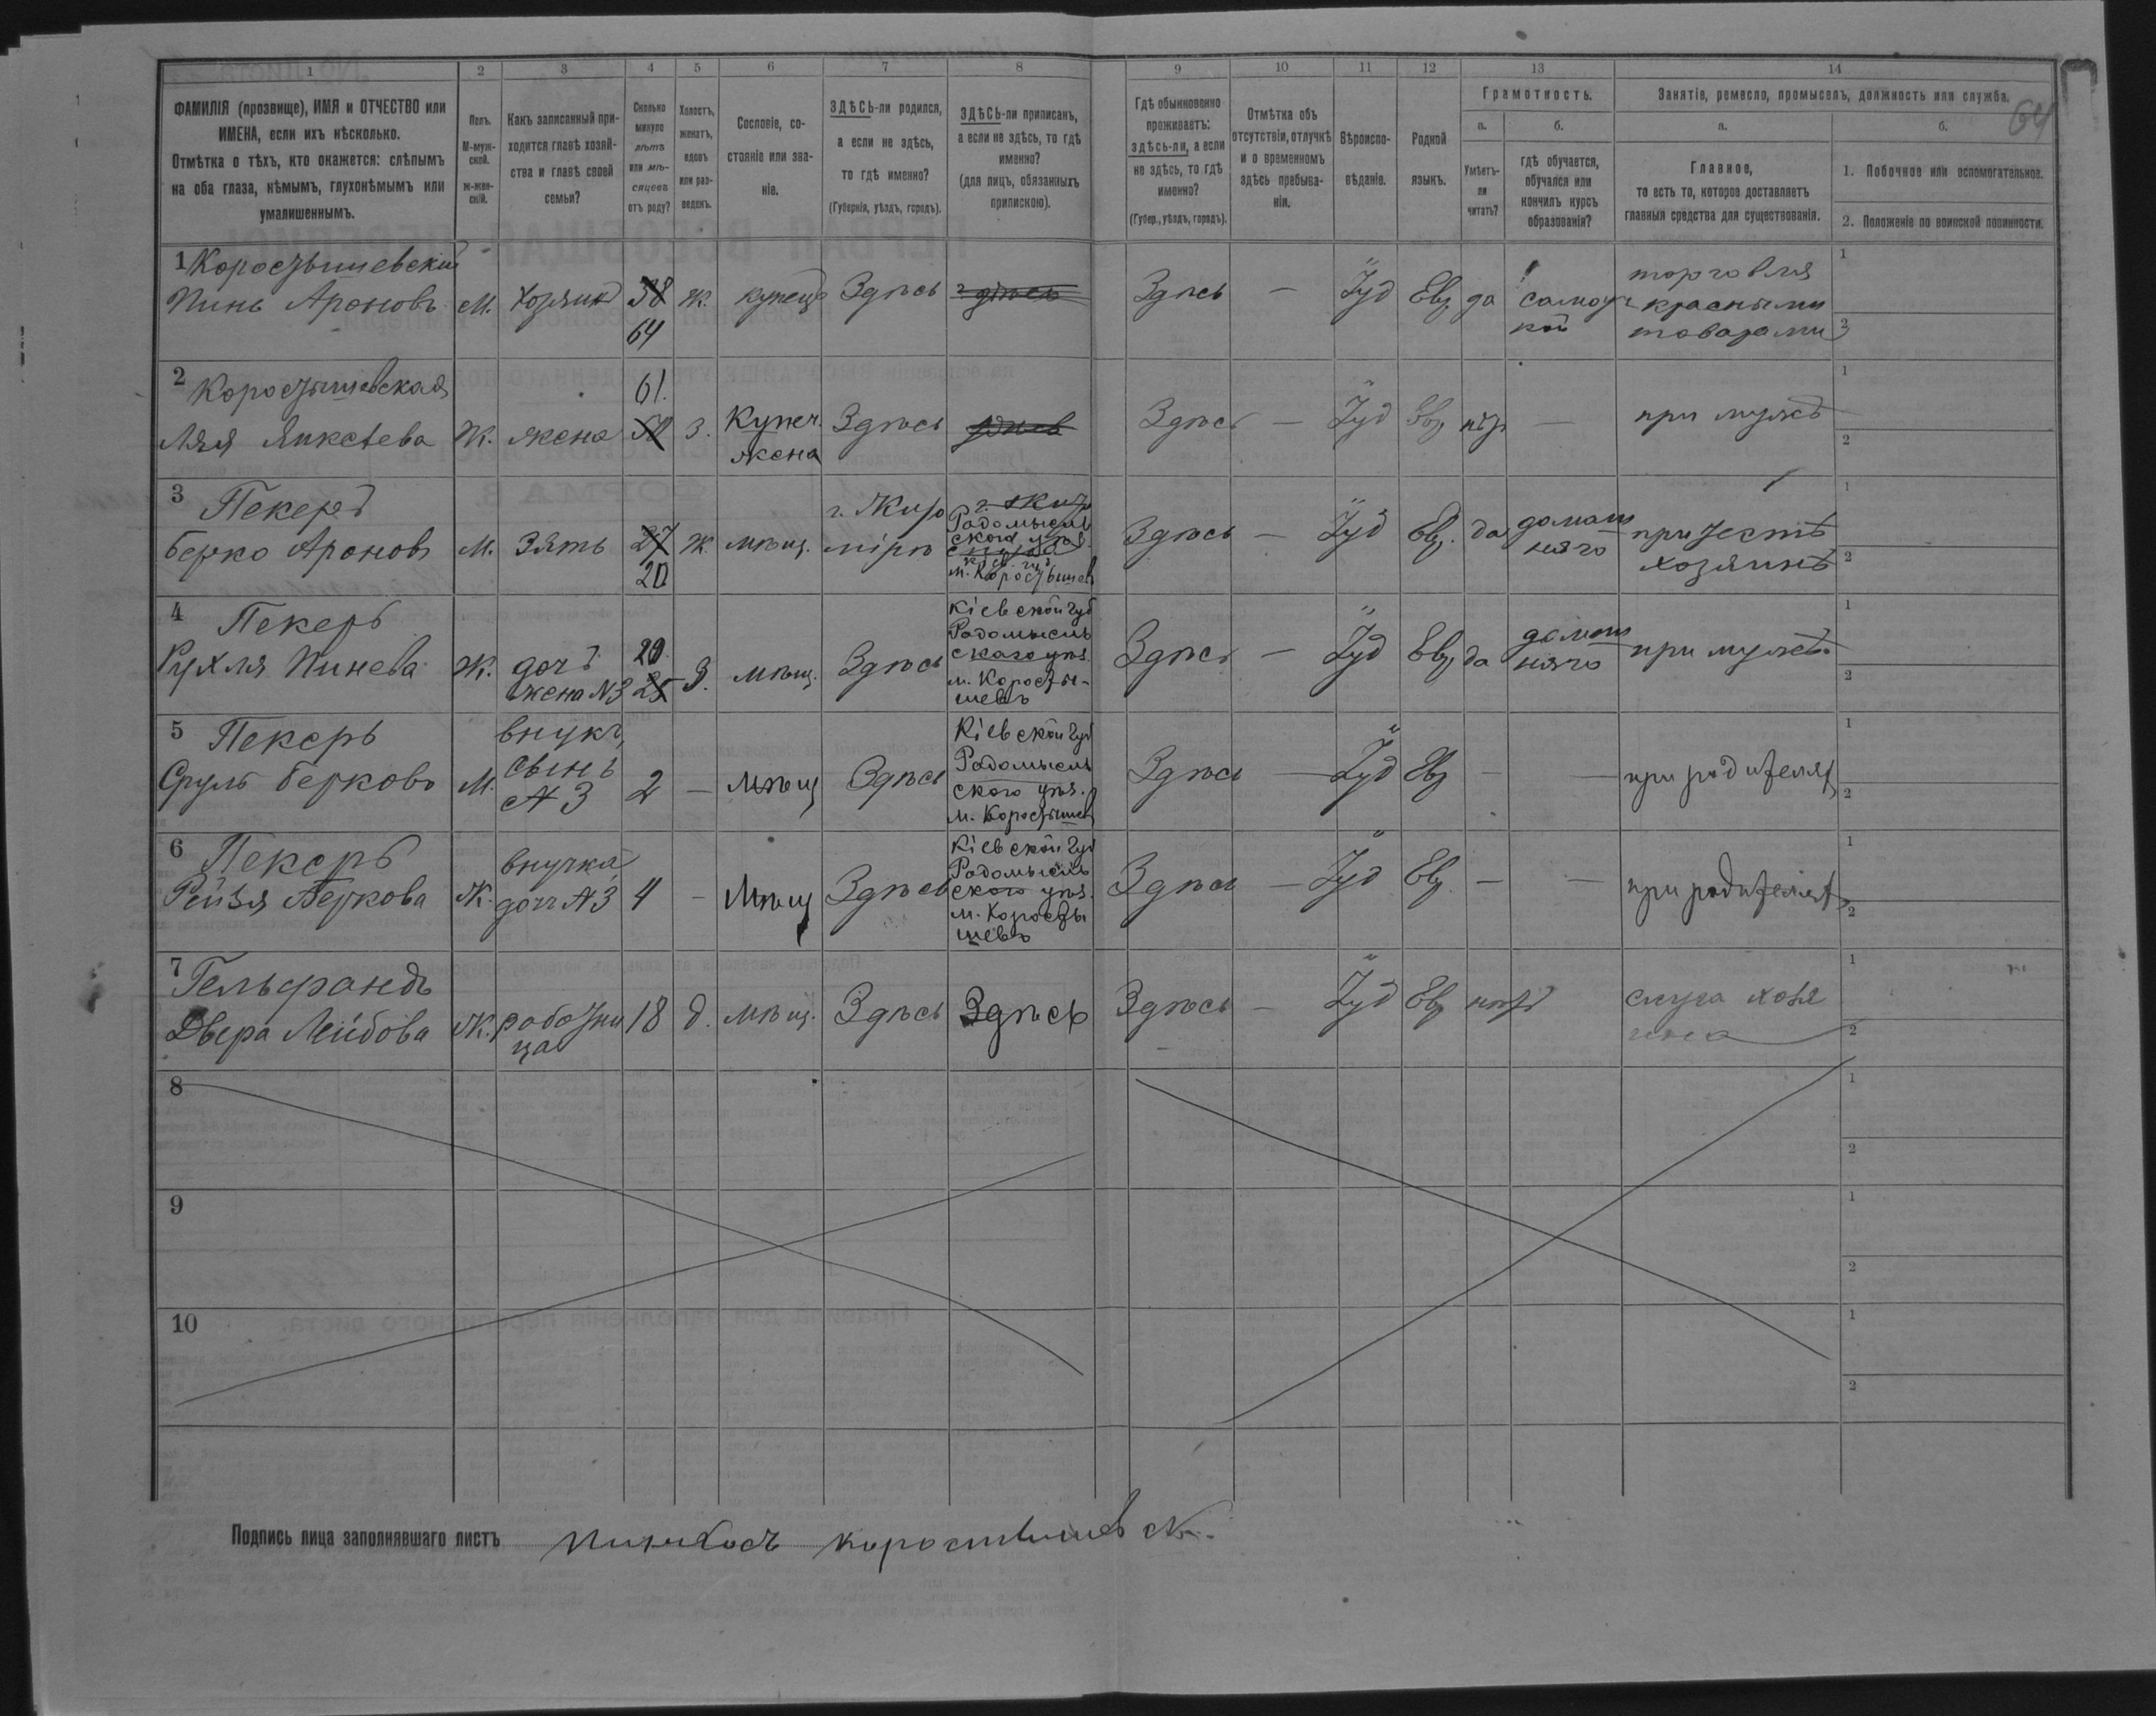 1 2 3 4 5 6 7 8 9 10 11 12 13 14
ФАМИЛІЯ (прозвище), ИМЯ и ОТЧЕСТВО или
ИМЕНА, если ихъ нѣсколько.
Отмѣтка о тѣхъ, кто окажется: слѣпымъ
на оба глаза, нѣмымъ, глухонѣмымъ или
умалишеннымъ.
Полъ.
М-муж-
ской.
ж-жен-
скій.
Какъ записанный при-
ходится главѣ хозяй-
ства и главѣ своей
семьи?
Сколько
минуло
лѣтъ
или мѣ-
сяцевъ
отъ роду?
Холостъ,
женатъ,
вдовъ
или раз-
веденъ.
Сословіе, со-
стояніе или зва-
ніе.
ЗДѢСЬ-ли родился,
а если не здѣсь,
то гдѣ именно?
(Губернія, уѣздъ, городъ).
ЗДѢСЬ-ли приписанъ,
а если не здѣсь, то гдѣ
именно?
(для лицъ, обязанныхъ
припискою).
Гдѣ обыкновенно
проживаетъ:
здѣсь-ли, а если
не здѣсь, то гдѣ
именно?
(Губер., уѣздъ, городъ).
Отмѣтка объ
отсутствіи, отлучкѣ
и о временномъ
здѣсь пребыва-
ніи.
Вѣроиспо-
вѣданіе.
Родной
языкъ.
Грамотность.
а. б.
Умѣетъ-
ли
читать?
гдѣ обучается,
обучался или
кончилъ курсъ
образованія?
Занятіе, ремесло, промыселъ, должность или служба.
64
а. б.
Главное,
то есть то, которое доставляетъ
главныя средства для существованія.
1. Побочное или вспомогательное.
2. Положеніе по воинской повинности.
1 Коростышевскій
Пинь Ароновъ М. хозяинъ 58 Ж. купецъ Здѣсь здѣсь Здѣсь — Іуд Евр да самоуч
64
кой
торговля
красными
товарами
1
2
2 Коростышевская
61.
Ляя Янкелева Ж. жена 50 З. Купеч. Здѣсь здѣсь Здѣсь — Іуд Евр нѣт — при мужѣ
жена
1
2
3 Пекеръ
Берко Ароновъ М. Зять 27 Ж. мѣщ.
20
г. Жито
міръ
г. Жит
Радомысль
ского уѣз.
м. Коростышев
Здѣсь — Іуд Евр. да домаш
няго
при тестѣ
хозяинѣ
1
2
4 Пекеръ
Рухля Пинева Ж. дочь 20
жена №3 25 З. мѣщ. Здѣсь
Кіевской губ
Радомысль
скаго уѣз.
м. Коросты-
шевъ
Здѣсь — Іуд Евр да домаш
няго
при мужѣ
1
2
5 Пекеръ
Сруль Берковъ М.
внукъ,
сынъ
№ 3
2 — мѣщ Здѣсь
Кіевской губ
Радомысль
ского уѣз.
м. Коростышев
Здѣсь — Іуд Евр — — при родителях
1
2
6 Пекеръ
Рейзя Беркова Ж.
внучка
доч №3
4 — мѣщ Здѣсь
Кіевской губ
Радомысль
ского уѣз.
м. Коросты
шевъ
Здѣсь — Іуд Евр. — — при родителях
1
2
7 Гельфандъ
Двера Лейбова Ж. работни
ца
18 д. мѣщ. Здѣсь Здѣсь Здѣсь — Іуд Евр нѣтъ
слуга хозя
ина
1
2
8
1
2
9
1
2
10
1
2
Подпись лица заполнявшаго листъ Пинхосъ коростышевск.